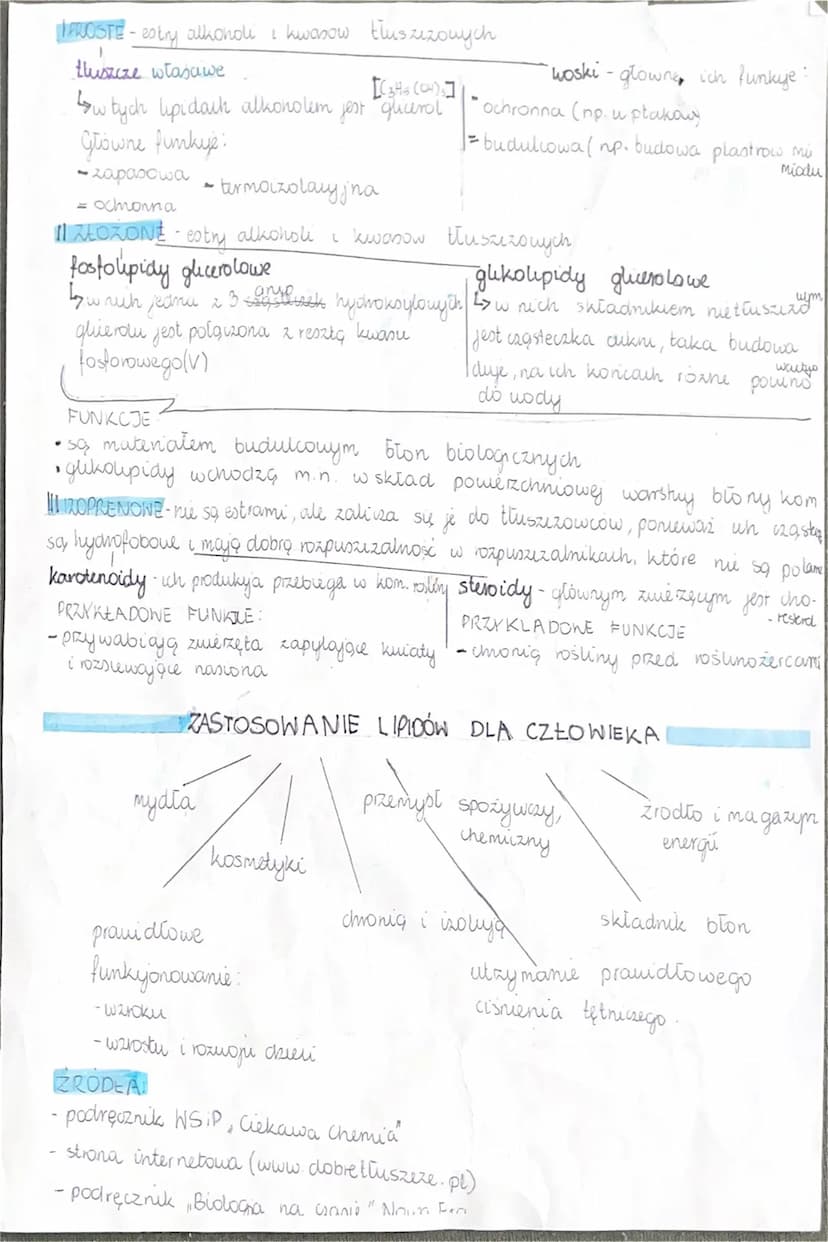 I PROSTE - estry alkoholi i kwasów tłuszczowych
tłuszcze właściwe
↳ w tych lipidach alkoholem jest glicerol
[C3H5(OH)3]
Główne funkcje:
- zapasowa
- termoizolacyjna
= ochronna
woski - główne, ich funkcje:
- ochronna (np. u ptaków)
= budulcowa (np. budowa plastrów mi
miodu
II ZŁOŻONE - estry alkoholi i kwasów tłuszczowych
fosfolipidy glicerolowe
↳ w nich jedna z 3 grup hydroksylowych
glicerolu jest połączona z resztą kwasu
fosforowego(V)
glikolipidy glicerolowe
↳ w nich składnikiem nietłuszczo
wym
jest cząsteczka cukru, taka budowa
duje, na ich końcach różne powino
wactwo
do wody
FUNKCJE
• są materiałem budulcowym błon biologicznych
• glikolipidy wchodzą m.n. w skład powierzchniowej warstwy błony kom
III IZOPRENOWE - nie są estrami, ale zalicza się je do tłuszczowców, ponieważ ich cząstec
są hydrofobowe i mają dobrą rozpuszczalność w rozpuszczalnikach, które nie są polarne
karotenoidy - ich produkcja przebiega w kom. rośliny
PRZYKŁADOWE FUNKCJE:
- przywabiają zwierzęta zapylające kwiaty
i rozsiewające nasiona
steroidy - głównym zwierzęcym jest cho-
- resterol
PRZYKŁADOWE FUNKCJE
- chronią rośliny przed roślinożercami
ZASTOSOWANIE LIPIDÓW DLA CZŁOWIEKA
mydła
przemysł spożywczy,
chemiczny
źrodło i magazyn
energii
kosmetyki
chronią i izolują
składnik błon
prawidłowe
funkcjonowanie:
- wzroku
- wzrostu i rozwoju dzieci
utrzymanie prawidłowego
ciśnienia tętniczego.
ŹRÓDŁA:
- podręcznik WSiP „Ciekawa chemia"
- strona internetowa (www.dobretłuszcze.pl)
- podręcznik „Biologia na czasie" Nowa Era